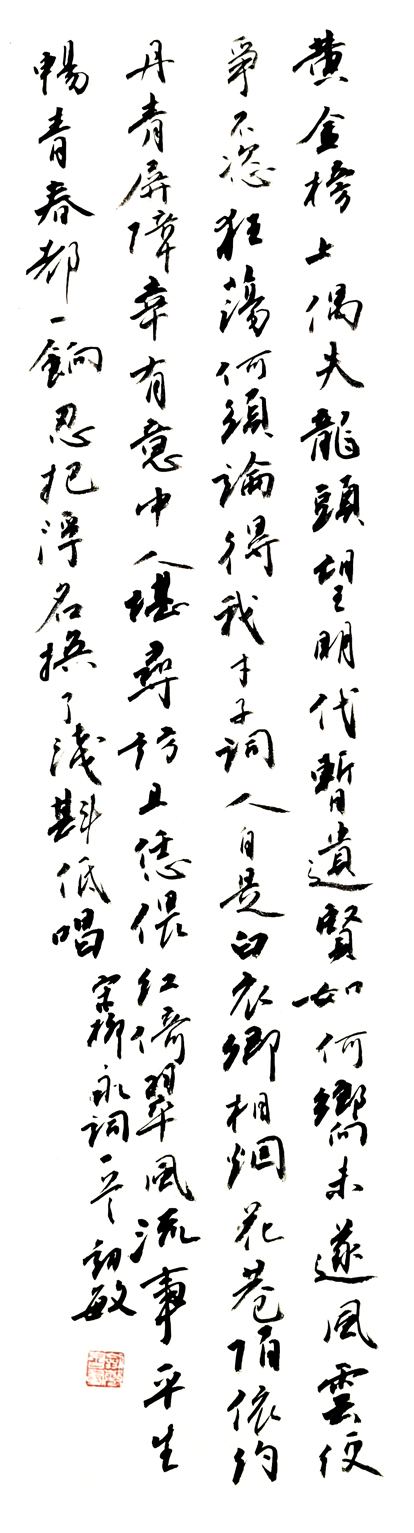 黄金榜上偶失龍頭望明代暫遺賢如何嚮未遂風雲便
爭不恣狂蕩何須論得我才子詞人自是白衣卿相烟花巷陌依約
丹青屏障幸有意中人堪尋訪且恁偎红倚翠風流事平生
暢青春都一餉忍把浮名換了淺斟低唱
宋柳永詞一首敏